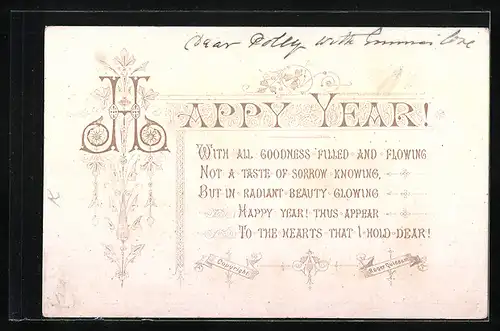 Dear Polly with Emma's love
HAPPY YEAR!
WITH ALL GOODNESS FILLED AND FLOWING
NOT A TASTE OF SORROW KNOWING,
BUT IN RADIANT BEAUTY GLOWING
HAPPY YEAR! THUS APPEAR
TO THE HEARTS THAT I HOLD DEAR!
Copyright.